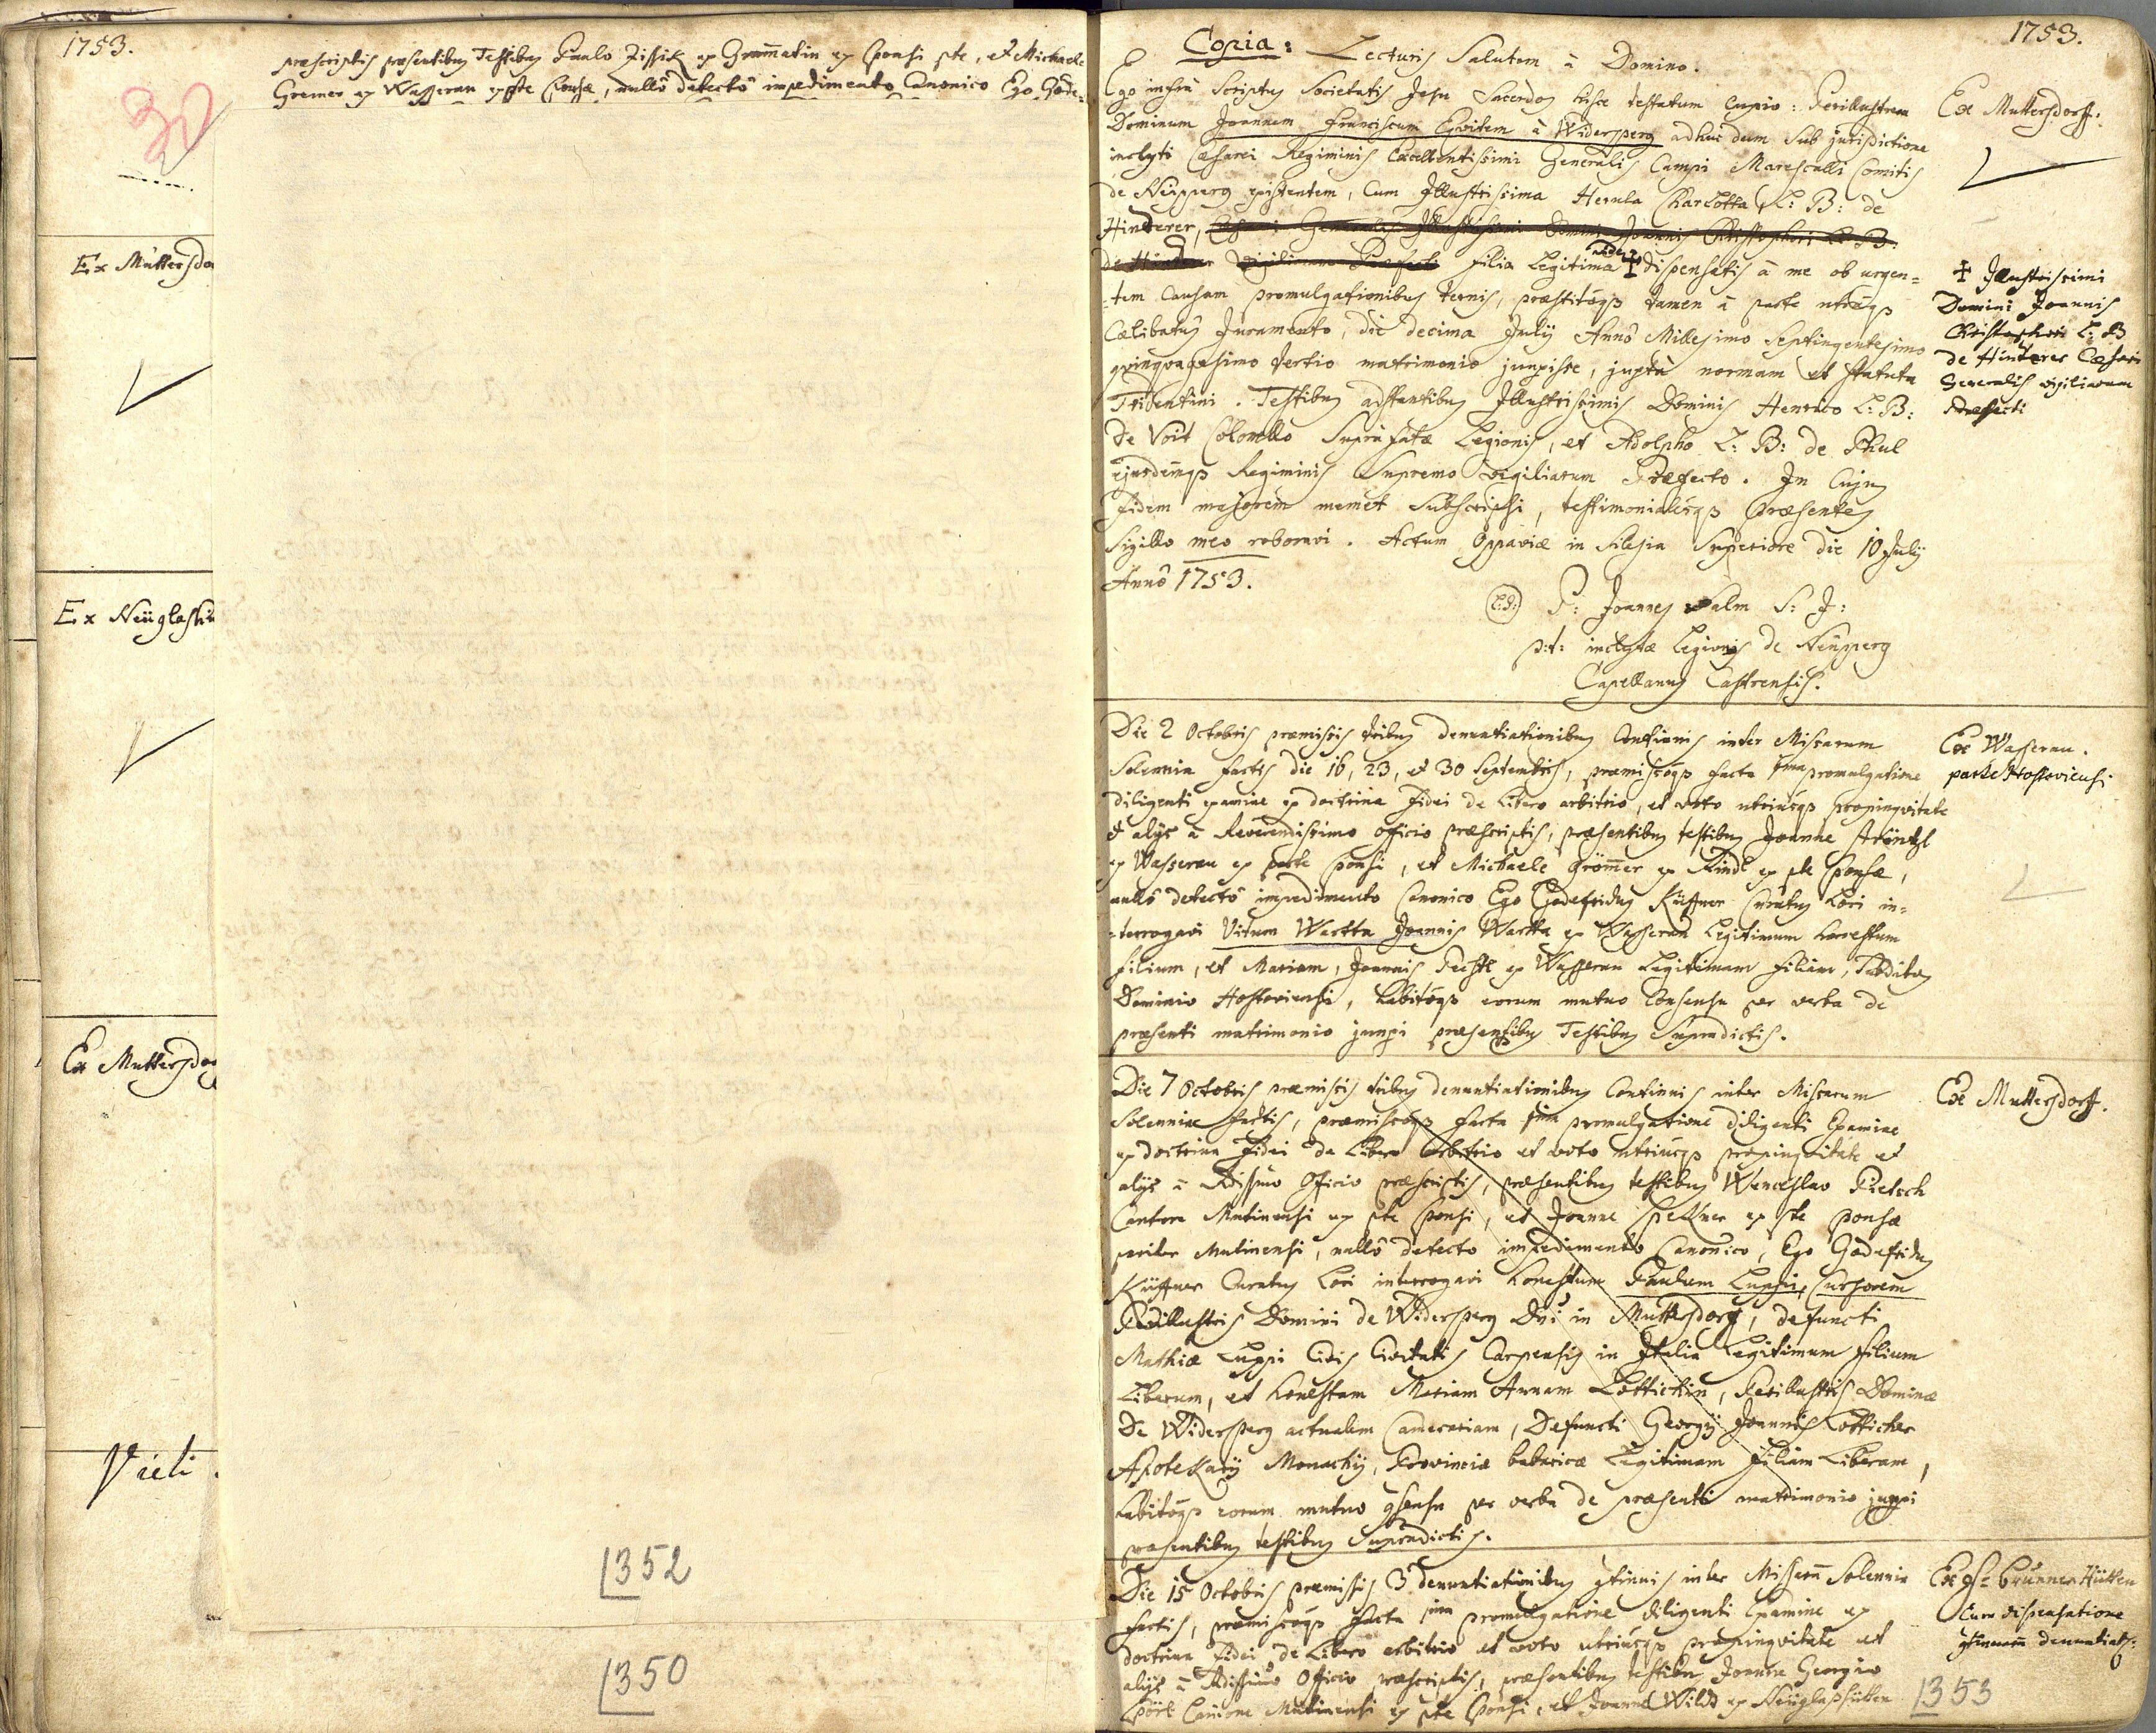 1753.
præscriptis præsentibus Testibus Paulo Zissik ex Gramatin ex Sponsi pte, et Michaele
Gremer ex Wasserau ex pte Sponsæ, nullô detectô impedimento Canonico Ego Gode=
30
Ex Muttersdo
Ex Neüglashü
Ex Muttersdor
Vidi
1352
1350
1753.
Copia: Lecturis Salutem à Domino.
Ego infra Scriptus Societatis Jesu Sacerdos hisce testatum cupio: Perillustrem
Dominum Joannem Franciscum Equitem à Widersperg adhuc dum sub jurisdictione
inclyti Cæsarei Regiminis Excellentissimi Generalis Campi Marescalli Comitis
de Neüpperg existentem, cum Illustrissima Herula Charlotta L: B: de
Hinderer, Cæsarei Generalis Illustrissimi Domini Joannis Christophori L: B:
de Hinderer Vigiliarum Præfecti filia Legitima dispensatis à me ob urgen=
=tem causam promulgationibus ternis, præstitoqß tamen à parte utráqß
Cælibatûs Juramento, die decima July Annô Millesimo Septingentesimo
quinquagesimo tertio matrimonio junxisse, juxtà normam et statuta
Tridentini. Testibus adstantibus Illustrissimis Dominis Henrico L: B:
de Voit Colonello Suprà fatæ Legionis, et Adolpho L: B: de Phul
ejusdemqß Regiminis Supremo vigiliarum Præfecto. In Cujus
Fidem majorem memet Subscripsi, testimonialesqß præsentes
Sigillo meo roboravi. Actum Oppaviæ in Silesia Superiore die 10 July
Annô 1753.
P: Joannes Salm S: J:
p:t: inclytæ Legionis de Neüpperg
Capellanus Castrensis.
Ex Muttersdorff.
✝ Illustrissimi
Domini Joannis
Christophori L: B
de Hinderer Cæsarei
Generalis vigiliarum
Præfecti
Die 2 Octobris præmissis tribus denuntiationibus Continuis inter Missarum
Solemnia factis die 16, 23, et 30 Septembris, præmissoqß facta 1ma promulgatione
diligenti examine ex doctrina fidei de Libero arbitrio, et voto utriusqß propinquitate
& alijs à Reverendissimo officio præscriptis, præsentibus testibus Joanne
ex Wasserau ex parte Sponsi, et Michaele Grömer ex Rindl ex pte Sponsæ,
nullô detectô impedimento Canonico Ego Godefridus Küffner Curatus Loci in=
=terrogavi Vitum Wartta Joannis Wartta ex Wasserau Legitimum honestum
filium, et Mariam, Joannis Pechtl ex Wasserau Legitimam filiam, Subditos
Dominio Hostoviensi, habitoqß eorum mutuo Consensu per verba de
præsenti matrimonio junxi præsentibus Testibus Supradictis.
Ex Wasserau.
parte Hostoviensi
Die 7 Octobris præmissis tribus denuntiationibus Continuis inter Missarum
Solemnia factis, præmissoqß facta 1ma promulgatione diligenti Examine
ex doctrina Fidei de Libero arbitrio et voto utriusqß propinquitate et
alijs à Rdissimo Officio præscriptis, præsentibus testibus Wenceslao Pietsch
Cantore Mutinensi ex pte Sponsi, et Joanne Spelkner ex pte Sponsæ
pariter Mutinensi, nullô detecto impedimento Canonico, Ego Godefridus
Küffner Curatus Loci interrogavi honestum Paulum Luppi, Cursorem
Perillustris Domini de Widersperg Dni in Muttersdorff, defuncti
Mathiæ Luppi Civis Civitatis Carpensis in Italia Legitimum filium
Liberum, et honestam Mariam Annam Lottichin, Perillustris Dominæ
De Widersperg actualem Camerariam, Defuncti Georgij Joannis Lotticher
Apotekarij Monachij, Provinciæ bavaricæ Legitimam Filiam Liberam,
habitoqß eorum mutuo gsensu per verba de præsenti matrimonio junxi
præsentibus testibus Supradictis.
Ex Muttersdorff.
Die 15 Octobris præmissis 3 denuntiationibus gtinuis inter Missarū Solemnia
factis, præmissoqß facta 1ma promulgatione diligenti Examine ex
doctrina fidei de Libero arbitrio et voto utriusqß propinquitate et
alijs à Rdissimo Officio præscriptis, præsentibus testibus Joanne Georgio
Pört Caupone Mutinensi ex pte Sponsi, et Joanne Wildt ex Neüglashütten
brunner Hütten
Cum dispensatione
denuntiat:
1353